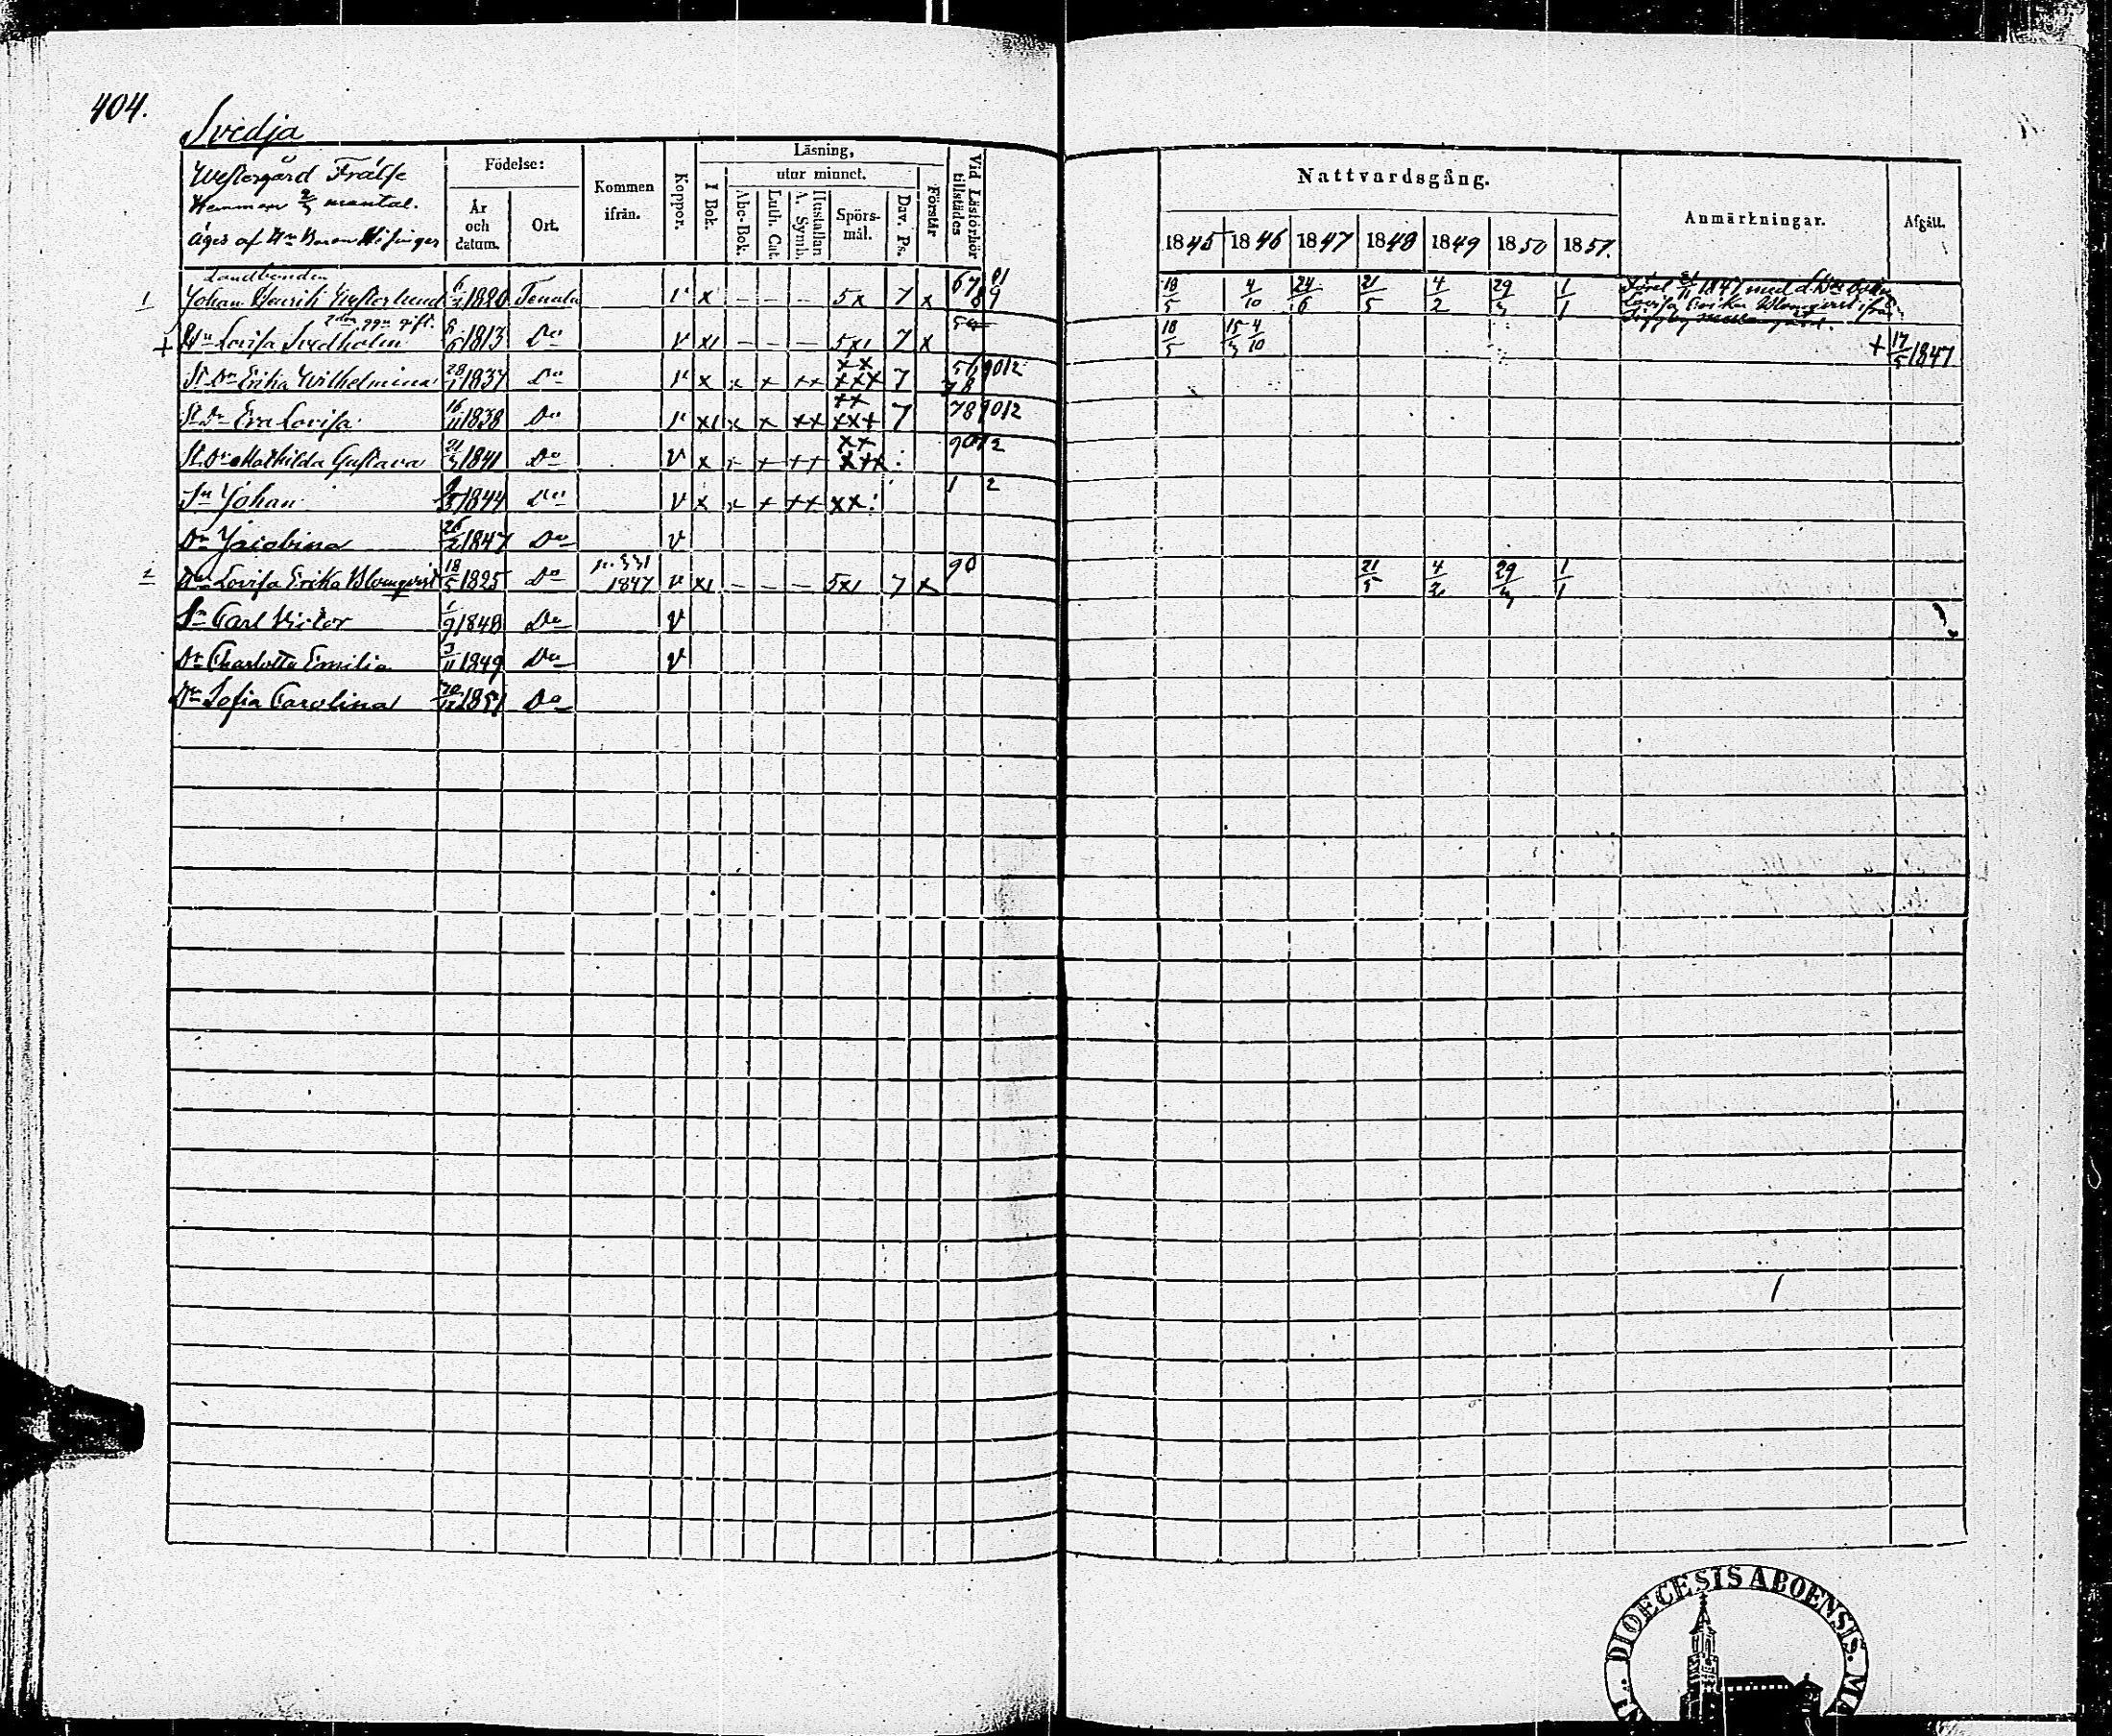 404.
Svedja
Westergård Frälse
Hemman 2/3 mantal.
Äges af Hr Baron Hisinger
Födelse:
År och datum.
Ort.
Kommen ifrån.
Koppor.
Läsning,
I Bok.
utur minnet.
Abc-Bok.
Luth. Cat.
Hustaflan A. Symb.
Spörsmål.
Dav. Ps.
Förstår
Vid Läsförhör tillstädes
Nattvardsgång.
1845 1846 1847 1848 1849 1850 1851.
Anmärkningar.
Afgått.
Landbonden
1 Johan Henrik Westerlund 1820 Tenala v x – – – 5x 7 x 678 18/5 4/10 24/6 21/5 4/2 29/3 1/1
1847 med
Lovisa Erika Blomqvist ifrån
2dra ggn gift.
+ Hu Lovisa Svedholm 1813 Do v x1 – – – 5x1 7 x 18/5 15/3 4/10 + 17/5 1847
St. Dr Erika Wilhelmina 28/1 1837 Do v x x x xx xx xxx 7
St. Dr Eva Lovisa 16/11 1838 Do v x1 x x xx xx xxx 7 78 9012
St. Dr Mathilda Gustava 1841 Do v x x x xx xx xxx 9012
Sn Johan 1844 Do v x x x xx xx: 1 2
Dr Jacobina 1847 Do v
2 Hu Lovisa Erika Blomqvist 18/5 1825 Do p. 331 1847 v x1 – – – 5x1 7 x 90 21/5 4/2 29/3 1/1
Sn Carl Victor 1/9 1848 Do v
Dr Charlotta Emilia 3/11 1849 Do v
Dr Sofia Carolina 1851 Do
DIOECESIS ABOENSIS. MA